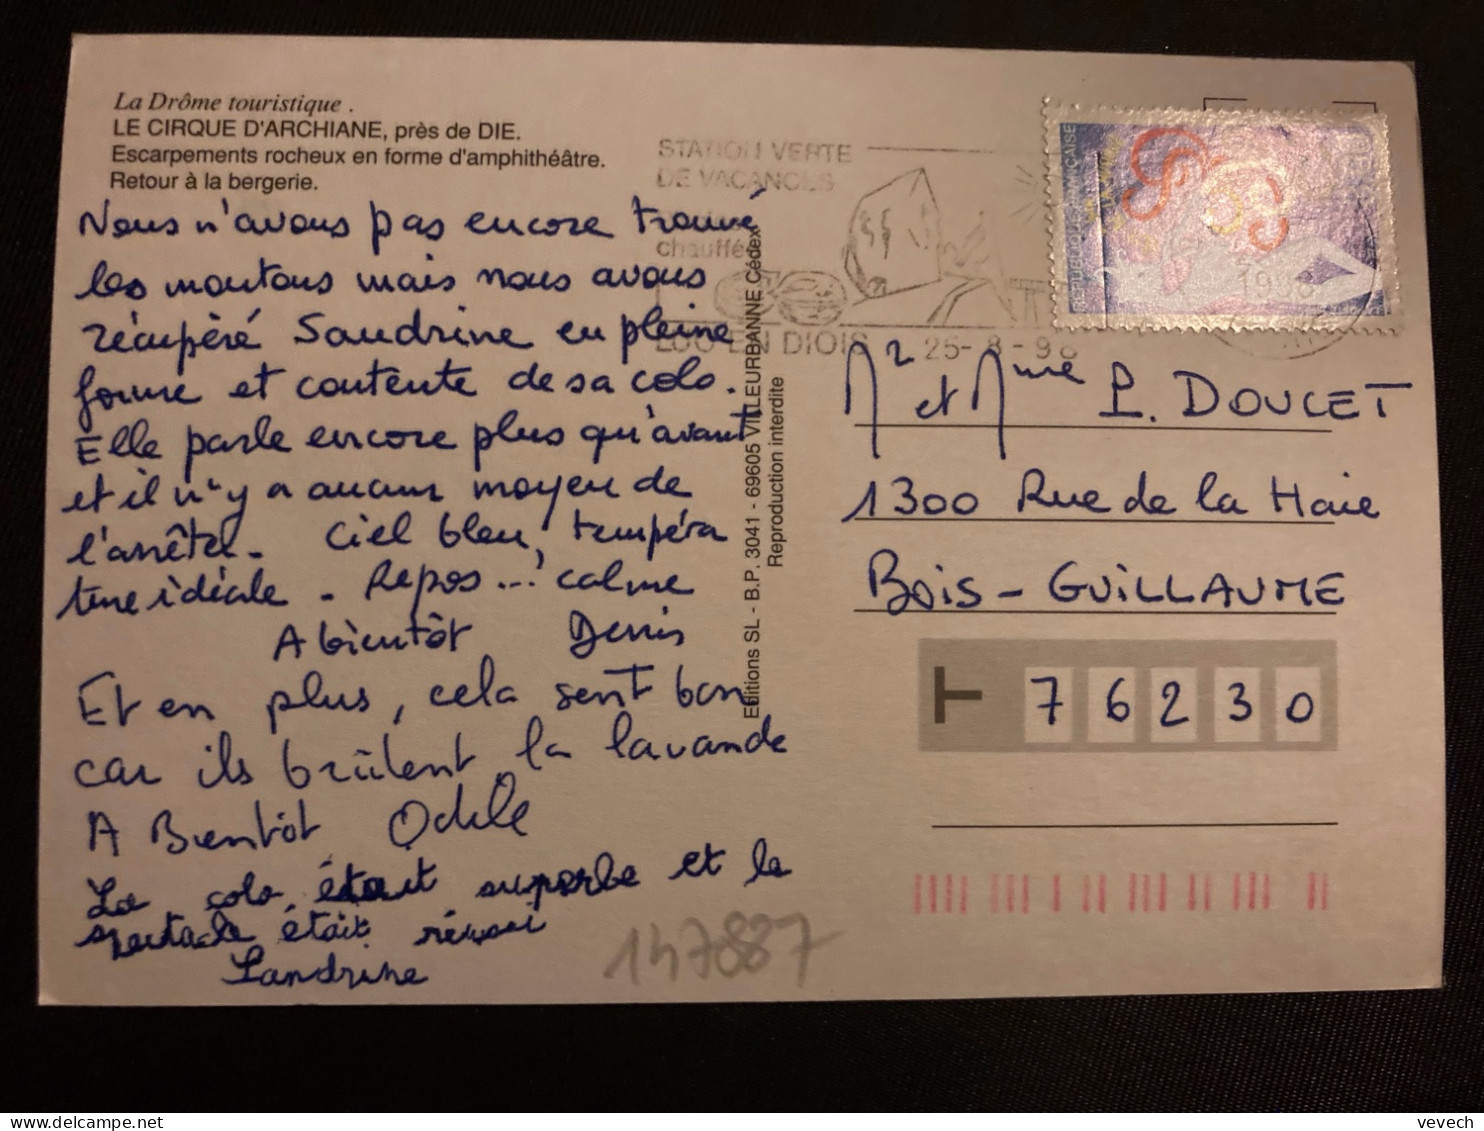 La Drôme touristique .
LE CIRQUE D'ARCHIANE, près de DIE.
Escarpements rocheux en forme d'amphithéâtre.
Retour à la bergerie.
Nous n'avons pas encore trouvé
les moutons mais nous avons
récupéré Sandrine en pleine
forme et contente de sa colo.
Elle parle encore plus qu'avant
et il n'y a aucun moyen de
l'arrêter. Ciel bleu, tempéra
ture idéale. Repos... calme
A bientôt Denis
Et en plus, cela sent bon
car ils brûlent la lavande
A Bientôt Odile
La colo était superbe et le
spectacle était réussi
Sandrine
Editions SL - B.P. 3041 - 69605 VILLEURBANNE Cédex
Reproduction interdite
STATION VERTE
DE VACANCES
chauffée
LUC EN DIOIS 25-8-98
REPUBLIQUE FRANÇAISE
1998
Mr et Mme P. DOUCET
1300 Rue de la Haie
BOIS-GUILLAUME
76230
147887
vevech delcampe.net